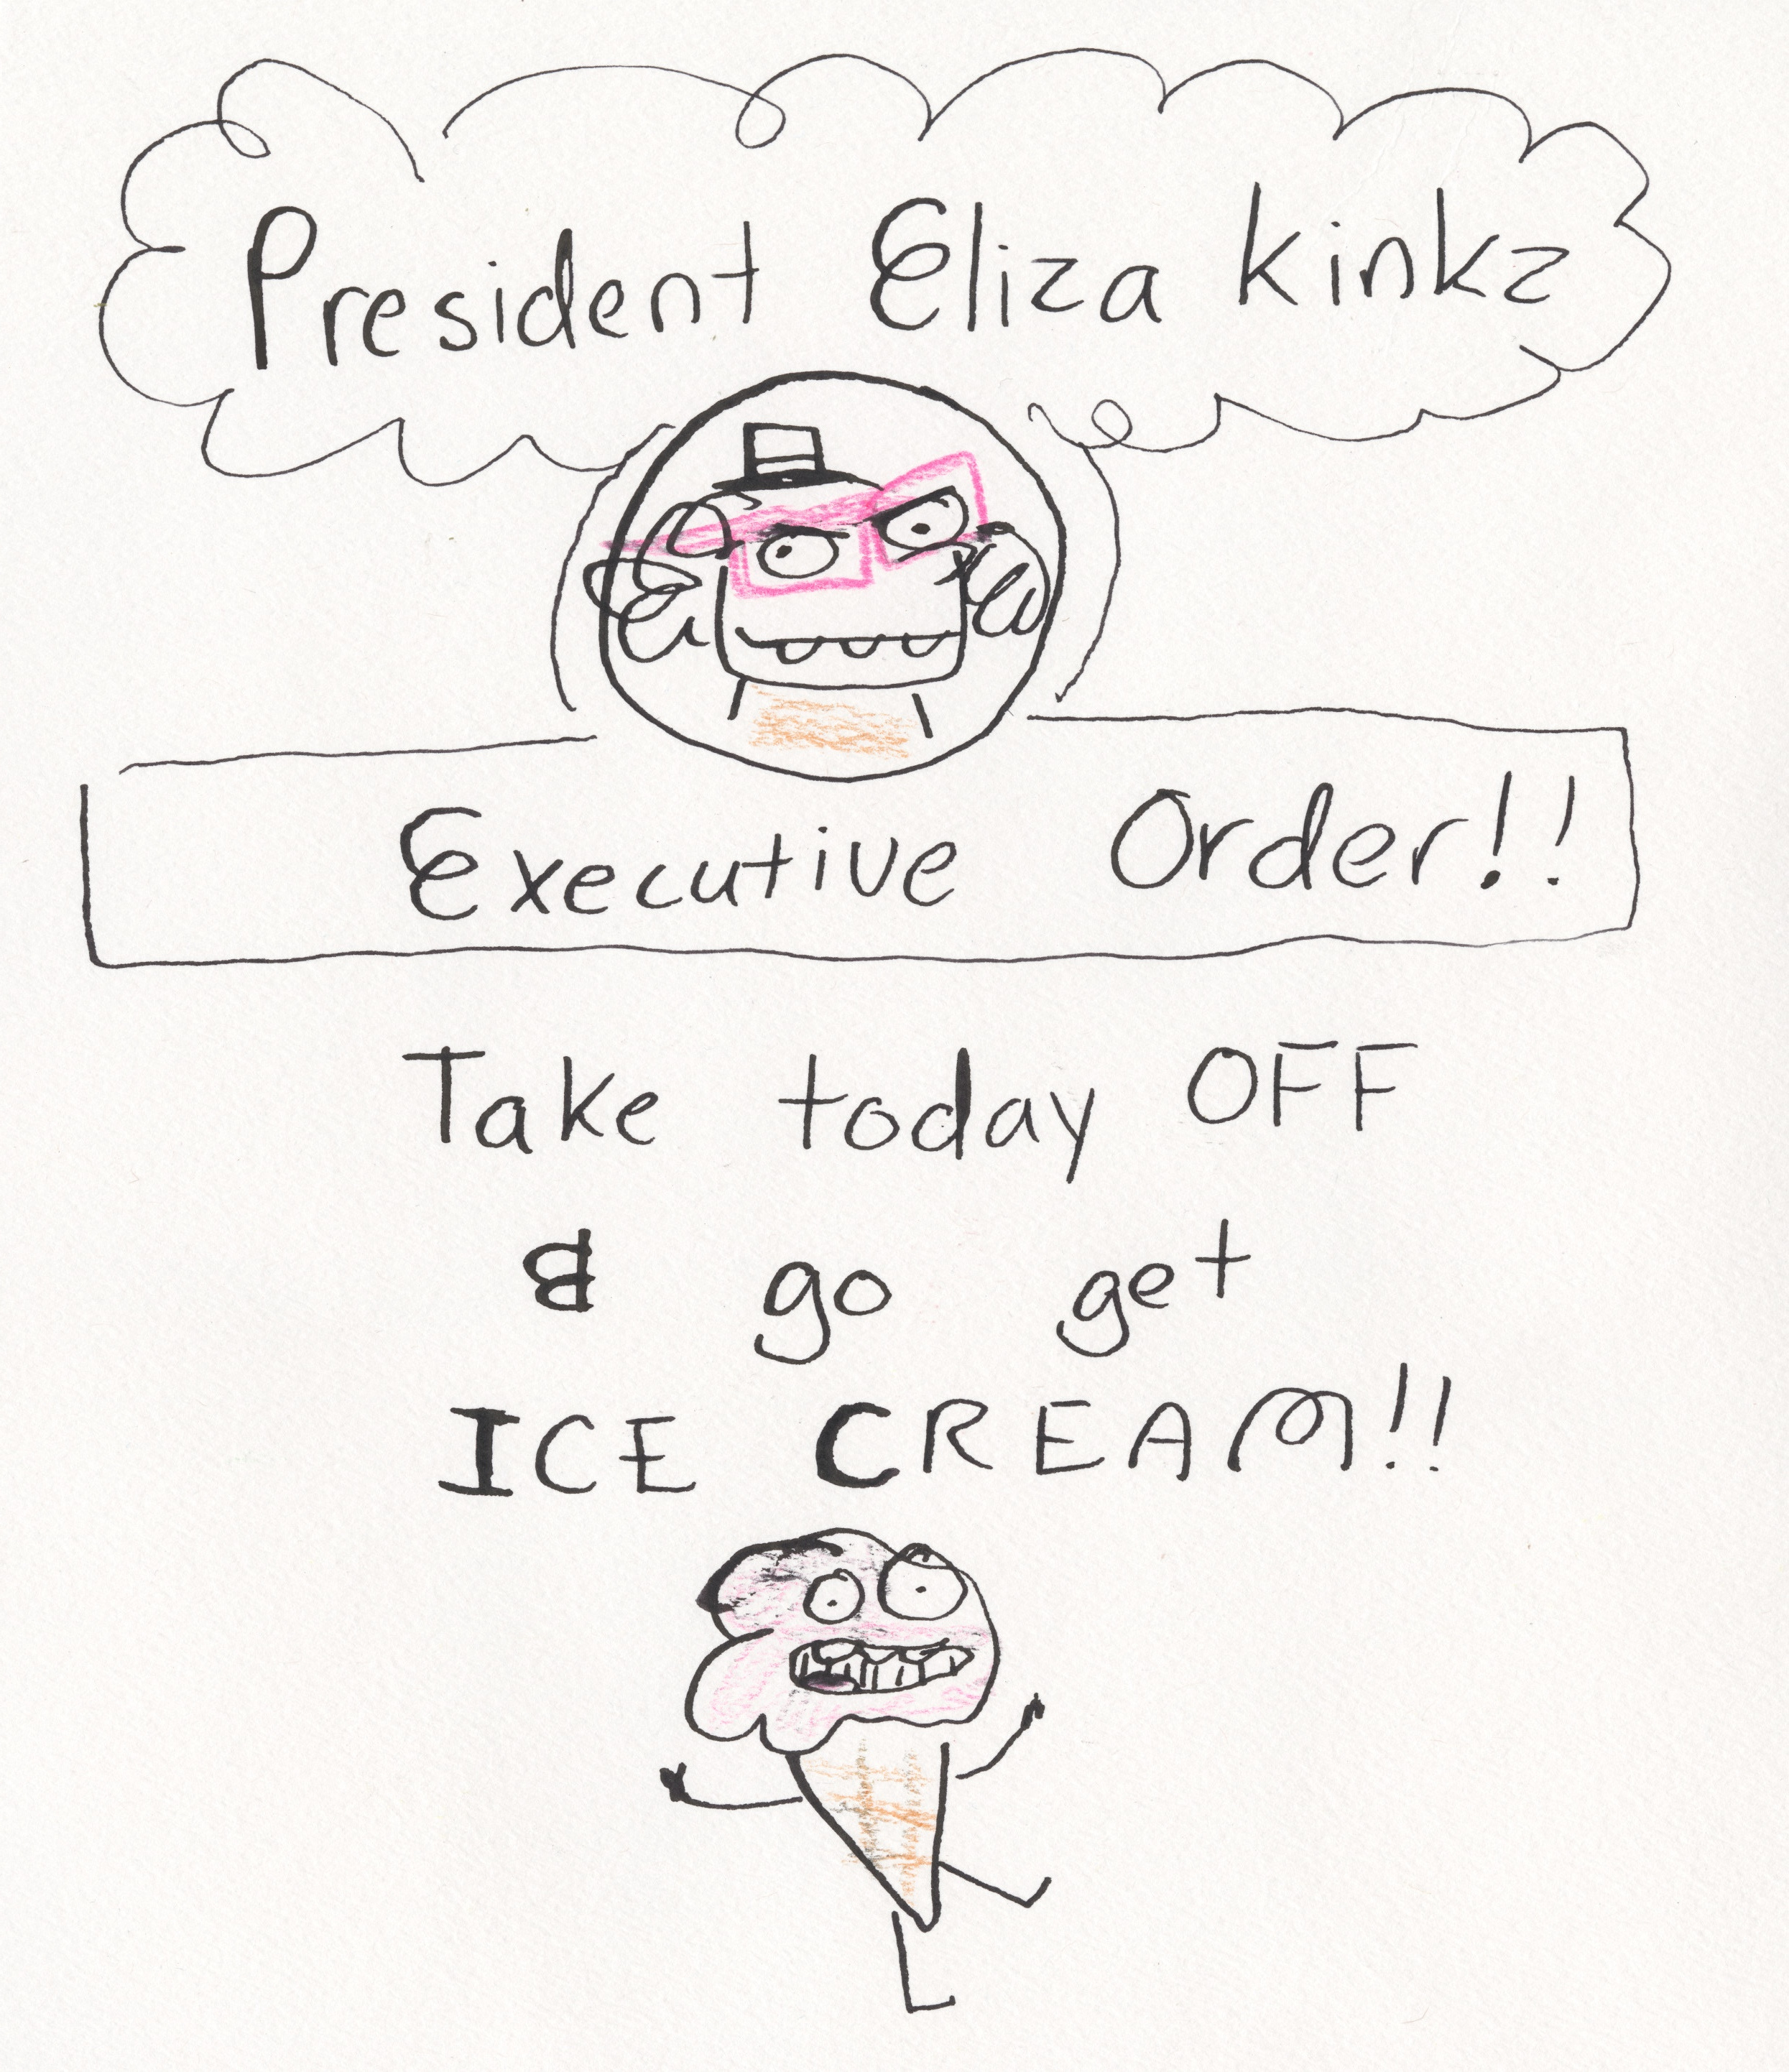 President Eliza Kinkz
Executive Order!!
Take today OFF
& go get
ICE CREAM!!